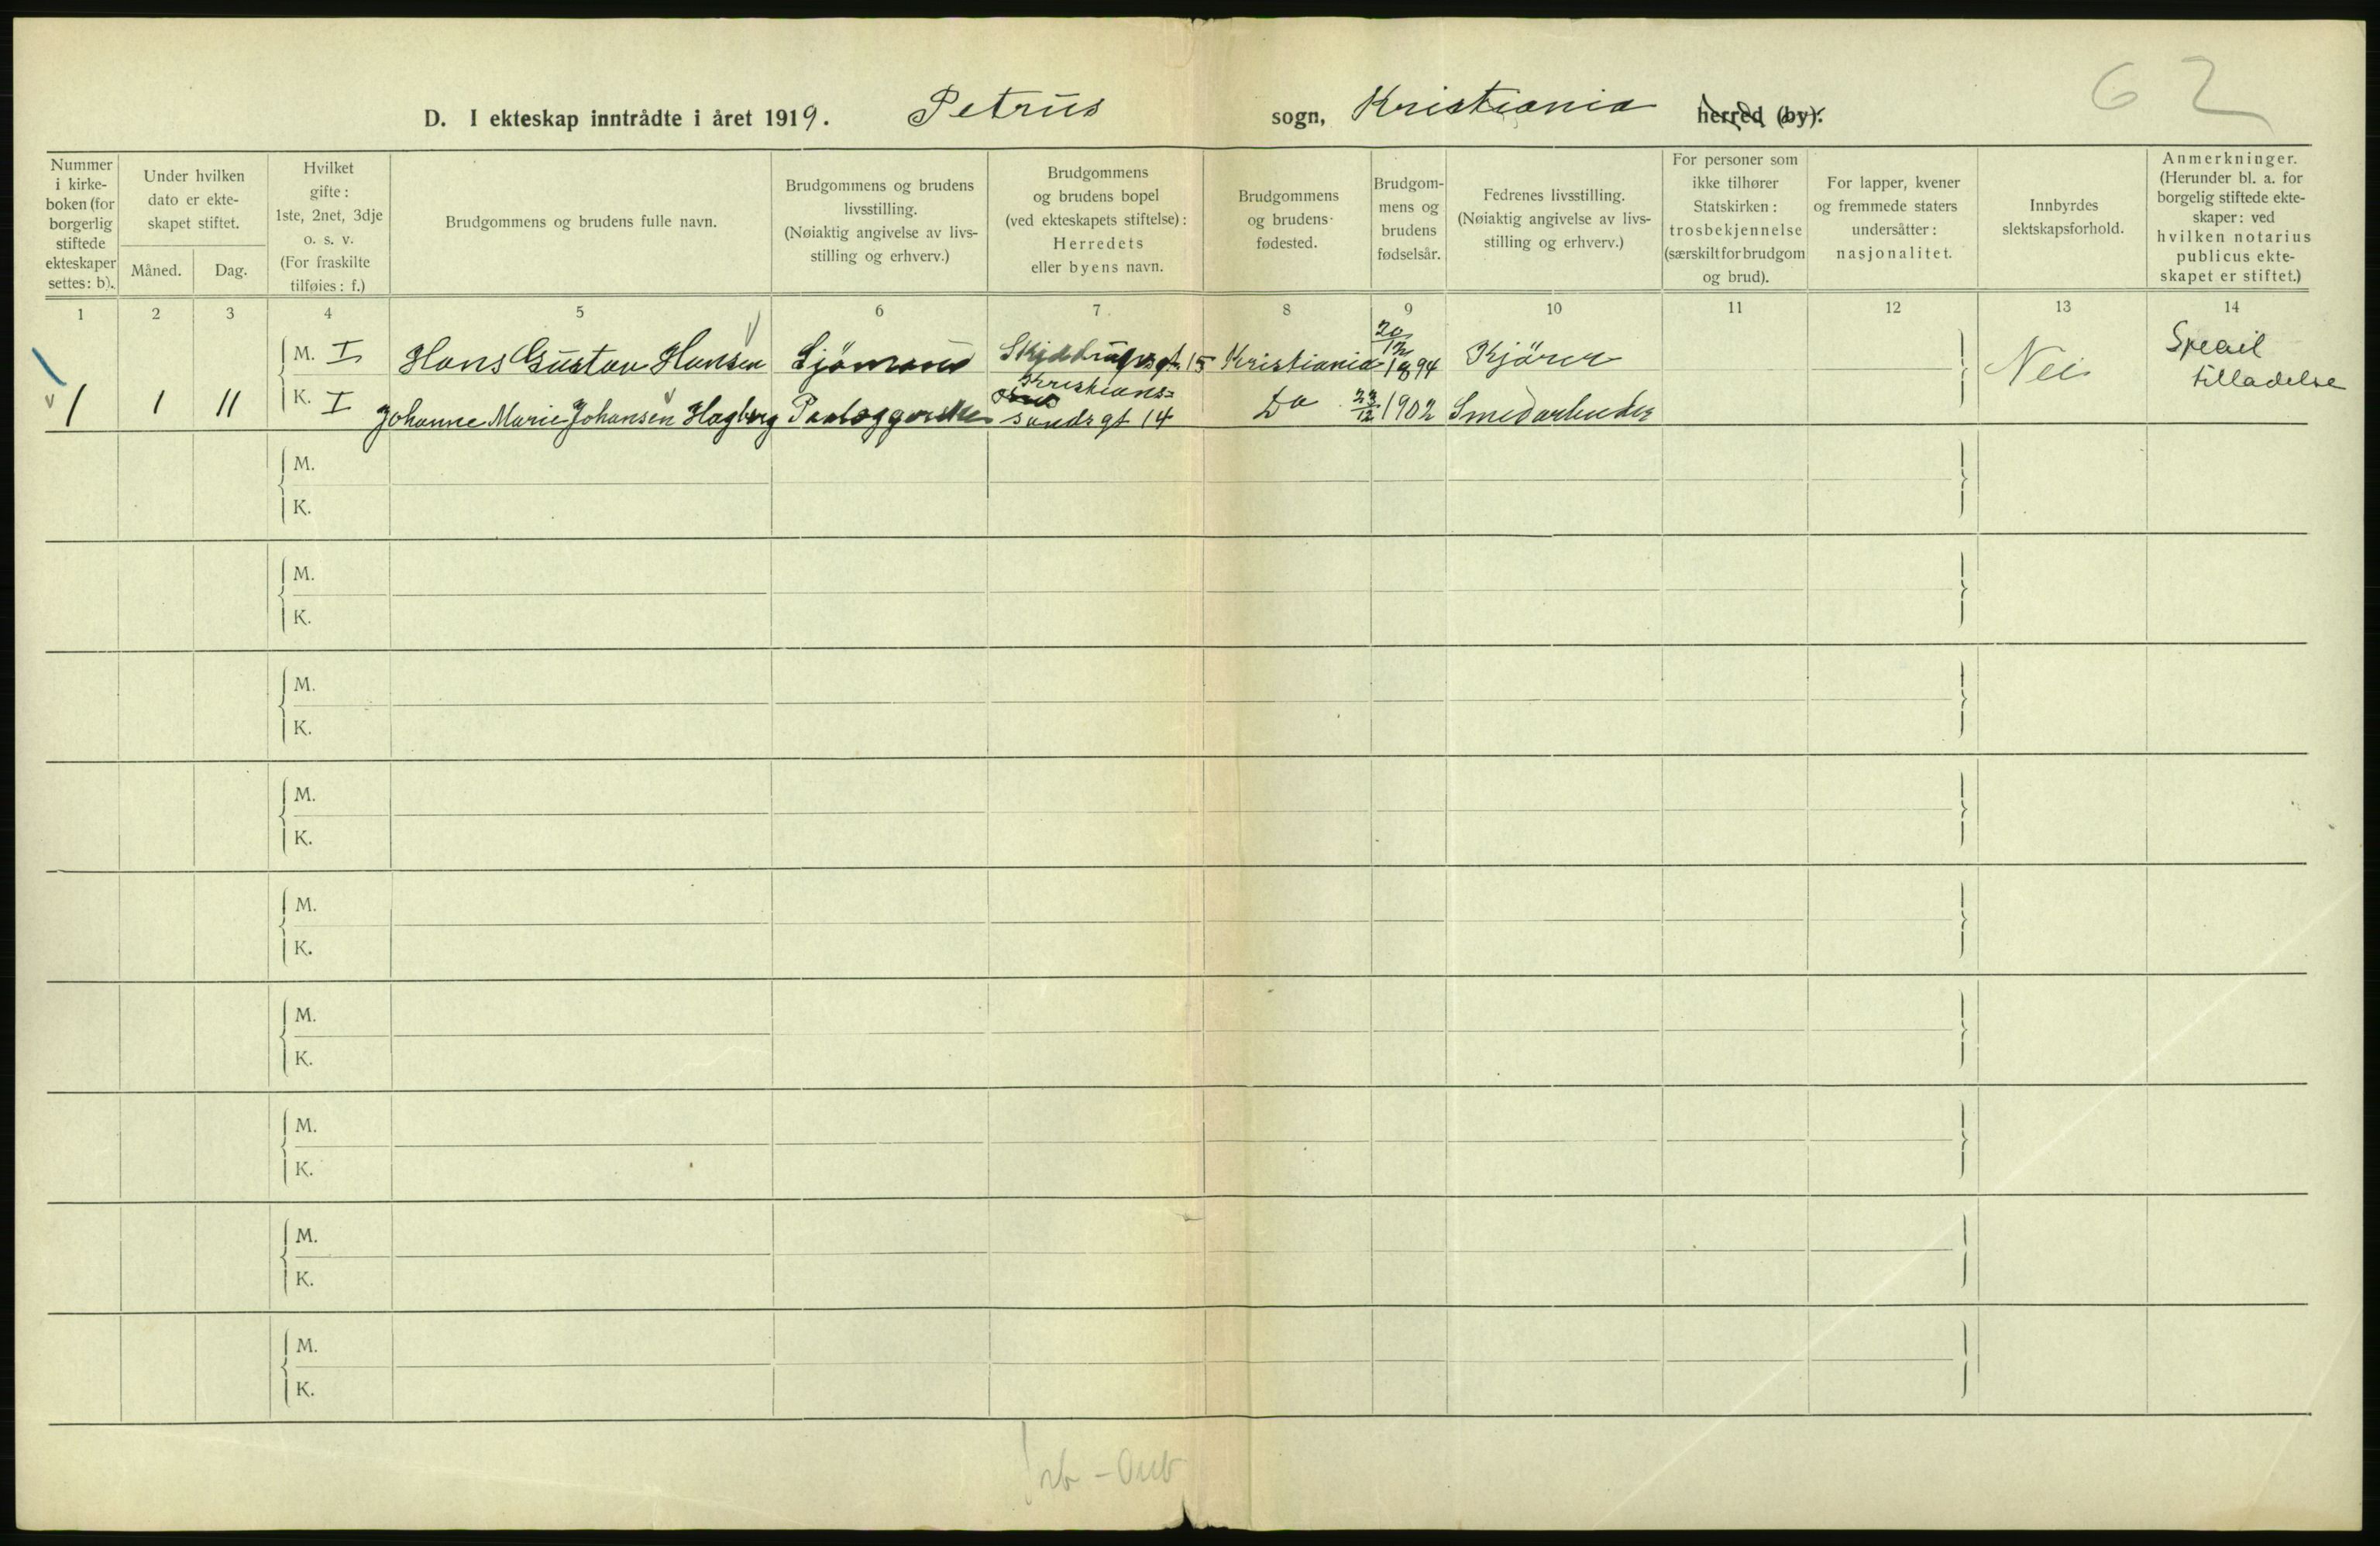 62
D. I ekteskap inntrådte i året 1919. Petrus sogn, Kristiania herred (by).
Nummer i kirke-boken (for borgerlig stiftede ekteskaper settes: b).
Under hvilken dato er ekte-skapet stiftet.
Måned. Dag.
Hvilket gifte: 1ste, 2net, 3dje o. s. v. (For fraskilte tilføies: f.)
Brudgommens og brudens fulle navn.
Brudgommens og brudens livsstilling. (Nøiaktig angivelse av livs-stilling og erhverv.)
Brudgommens og brudens bopel (ved ekteskapets stiftelse): Herredets eller byens navn.
Brudgommens og brudens fødested.
Brudgom-mens og brudens fødselsår.
Fedrenes livsstilling. (Nøiaktig angivelse av livs-stilling og erhverv.)
For personer som ikke tilhører Statskirken: trosbekjennelse (særskilt for brudgom og brud).
For lapper, kvener og fremmede staters undersåtter: nasjonalitet.
Innbyrdes slektskapsforhold.
Anmerkninger. (Herunder bl. a. for borgelig stiftede ekte-skaper: ved hvilken notarius publicus ekte-skapet er stiftet.)
1 2 3 4 5 6 7 8 9 10 11 12 13 14
M. I Hans Gustav Hansen Sjömand 15 Kristiania 20/12 1894 Kjörer Nei Speciel tilladelse
1 1 11 K. I Johanne Marie Johansen Hagberg Paalæggerske Kristians=sundsgt 14 Do 23/12 1902 Smedarbeider
M.
K.
M.
K.
M.
K.
M.
K.
M.
K.
M.
K.
M.
K.
M.
K.
M.
K.